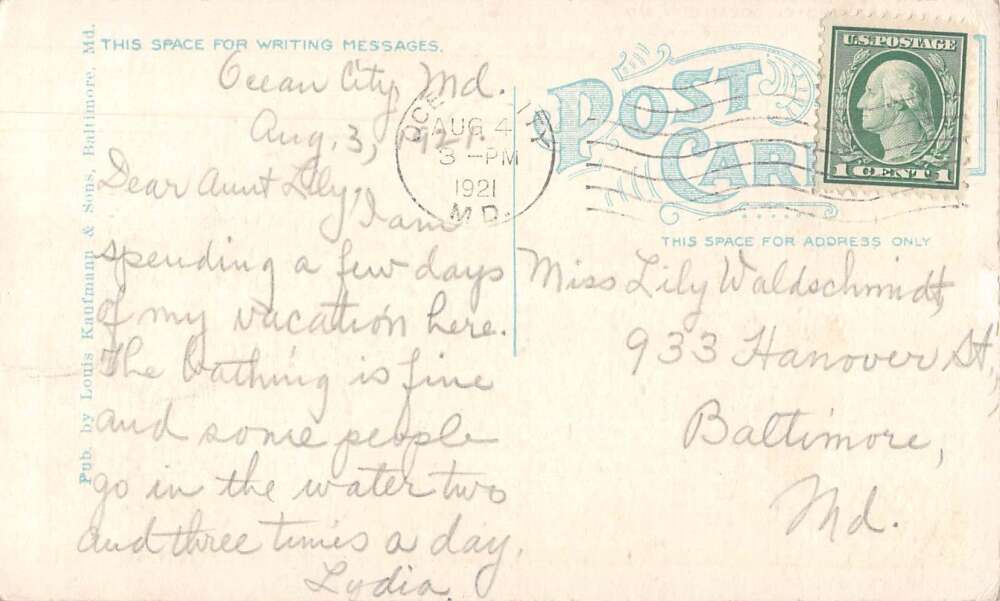 THIS SPACE FOR WRITING MESSAGES.
Ocean City, Md.
Aug. 3, 1921.
Dear Aunt Lily,
I am
spending a few days
of my vacation here.
The bathing is fine
and some people
go in the water two
and three times a day.
Lydia.
Pub. by Louis Kaufmann & Sons, Baltimore, Md.
AUG 4
3 - PM
1921
MD.
POST
CARD
U.S. POSTAGE
1 CENT 1
THIS SPACE FOR ADDRESS ONLY
Miss Lily Waldschmidt,
933 Hanover St.,
Baltimore,
Md.